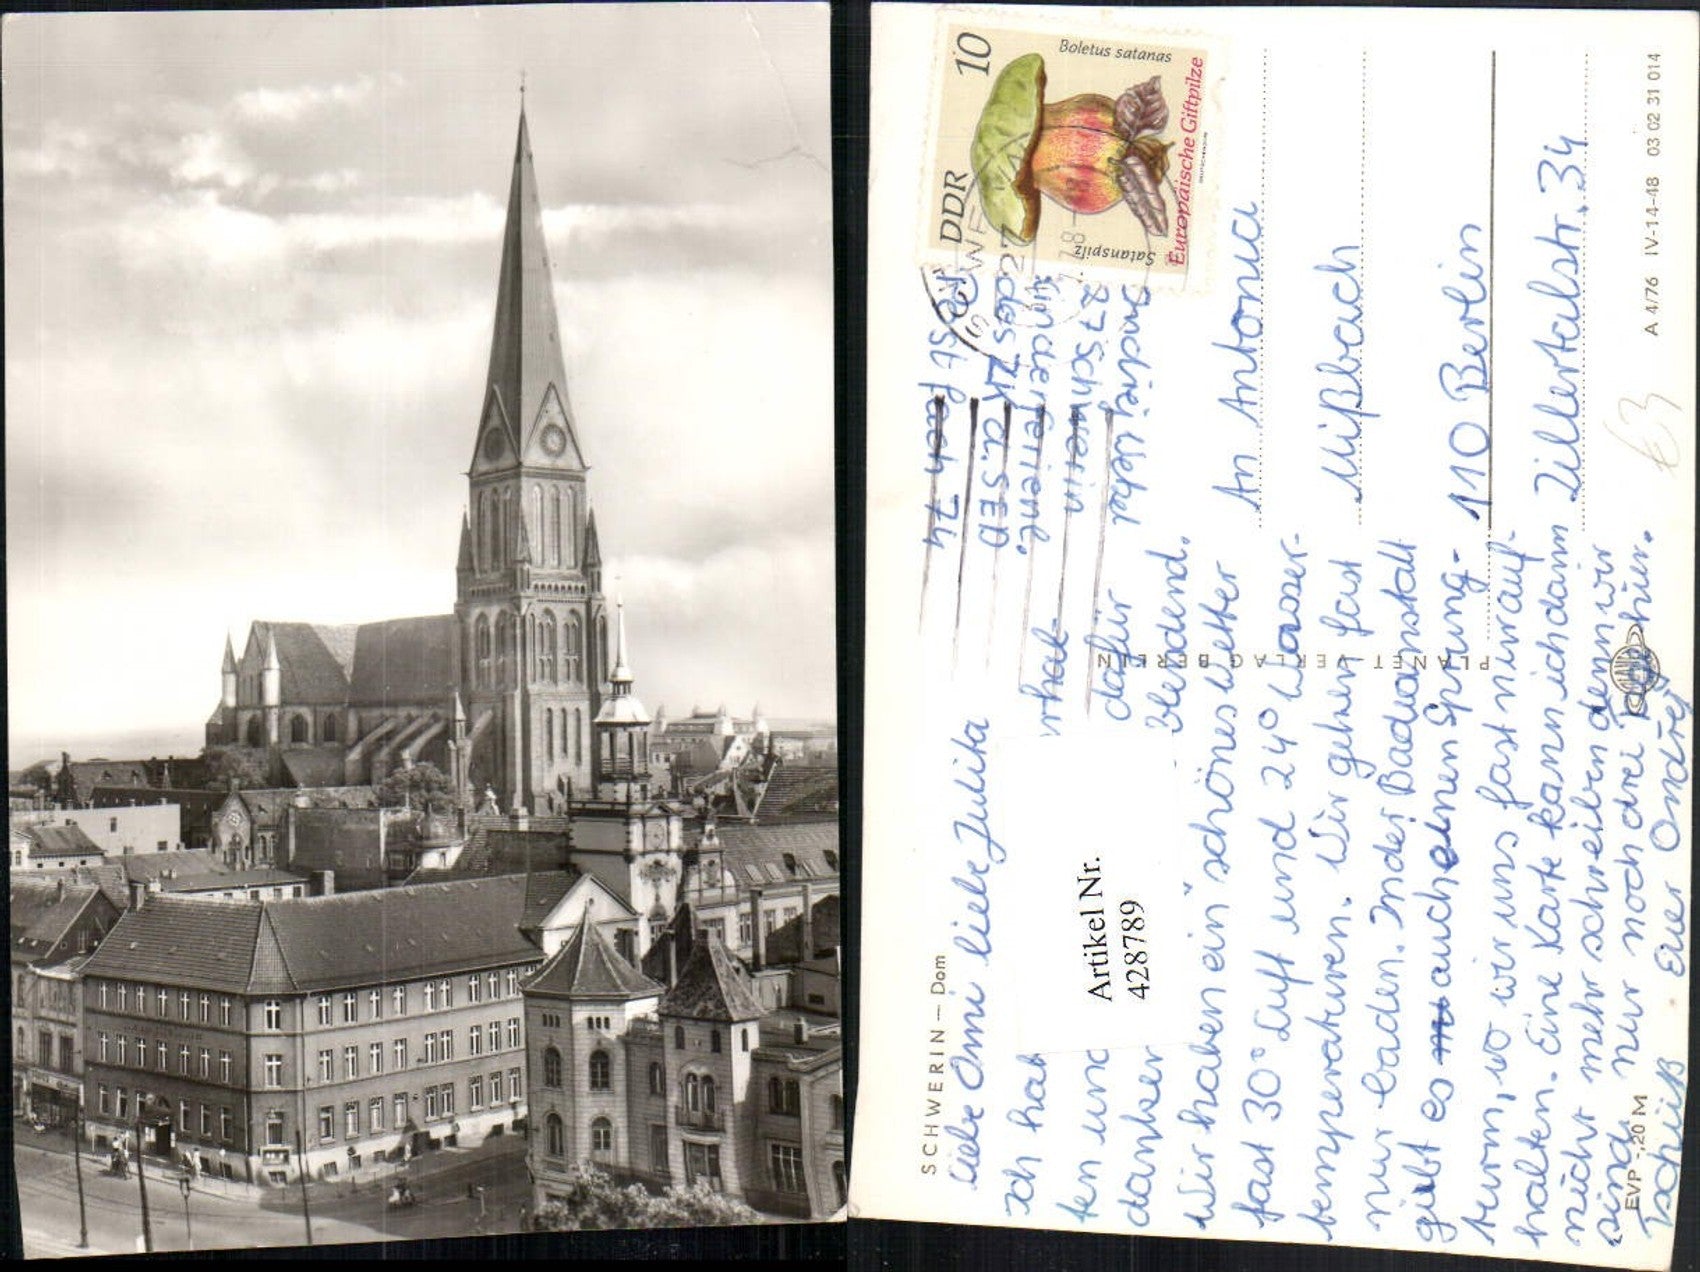 SCHWERIN — Dom
Liebe Omi liebe Julita
Ich hab
ten und
danker dafür
Wir haben ein schönes Wetter blendend.
fast 30° Luft und 24° Wasser-
temperaturen. Wir gehen fast
nur baden. In der Badeanstalt
gibt es auch einen Sprung-
turm, wo wir uns fast nur auf-
halten. Eine Karte kann ich dann
nicht mehr schreiben denn wir
sind nur noch drei Tage hier.
Tschüß Euer Ondrej
Ondrej
27 Schwerin
Kinderferienl.
des ZK d. SED
Postfach 74
An Antonia
Mißbach
110 Berlin
Zillertalstr. 34
DDR 10
Boletus satanas
Satanspilz
Europäische Giftpilze
PLANET-VERLAG BERLIN
EVP -,20 M
A 4/76 IV-14-48 03 02 31 014
€3
Artikel Nr.
428789